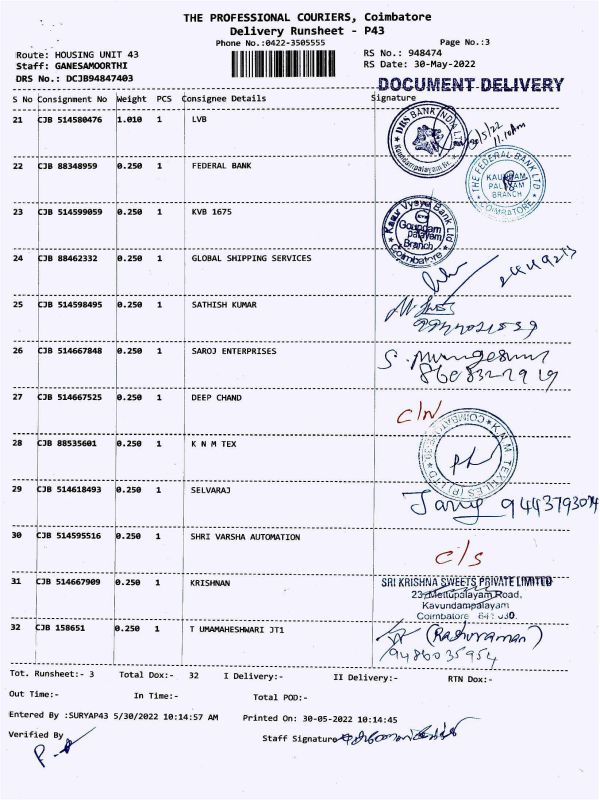 THE PROFESSIONAL COURIERS, Coimbatore
Delivery Runsheet - P43
Phone No.:0422-3505555
Page No.:3
Route: HOUSING UNIT 43
RS No.: 948474
Staff: GANESAMOORTHI
RS Date: 30-May-2022
DRS No.: DCJB94847403
DOCUMENT DELIVERY
S No Consignment No Weight PCS Consignee Details Signature
21 CJB 514580476 1.010 1 LVB
DBS BANK INDIA LTD
Kavundampalayam Br.
11.10Am
22 CJB 88348959 0.250 1 FEDERAL BANK
THE FEDERAL BANK LTD
KAUNDAM
PALAYAM
BRANCH
COIMBATORE
23 CJB 514599059 0.250 1 KVB 1675
Karur Vysya Bank Ltd
Goundam
palayam
Branch
Coimbatore
24 CJB 88462332 0.250 1 GLOBAL SHIPPING SERVICES
25 CJB 514598495 0.250 1 SATHISH KUMAR
26 CJB 514667848 0.250 1 SAROJ ENTERPRISES
27 CJB 514667525 0.250 1 DEEP CHAND
C/N
28 CJB 88535601 0.250 1 K N M TEX
K.N.M. TEXTILES (P) LTD
29 CJB 514618493 0.250 1 SELVARAJ
30 CJB 514595516 0.250 1 SHRI VARSHA AUTOMATION
C/S
31 CJB 514667909 0.250 1 KRISHNAN
SRI KRISHNA SWEETS PRIVATE LIMITED
23, Mettupalayam Road,
Kavundampalayam
Coimbatore - 641 030.
32 CJB 158651 0.250 1 T UMAMAHESHWARI JT1
(Raghuraman)
9486035954
Tot. Runsheet:- 3 Total Dox:- 32 I Delivery:- II Delivery:- RTN Dox:-
Out Time:- In Time:- Total POD:-
Entered By :SURYAP43 5/30/2022 10:14:57 AM Printed On: 30-05-2022 10:14:45
Verified By
Staff Signature